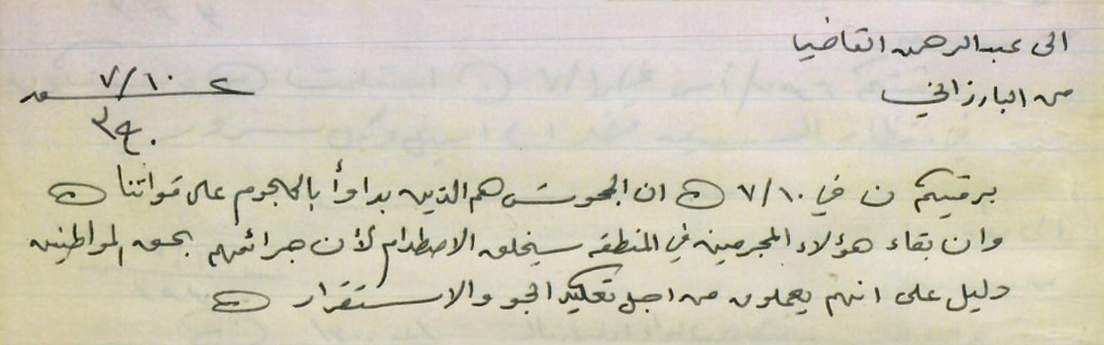 الى عبدالرحمن القاضيا
من البارزاني
٧/١٠
برقيتكم ن في ٧/١٠ ان الجحوش هم الذين بداوأ بالهجوم على قواتنا
وان بقاء هؤلاء المجرمين في المنطقة سيخلق الاصطدام لأن جرائمهم بحق المواطنين
دليل على انهم يعملون من اجل تعكير الجو والاستقرار